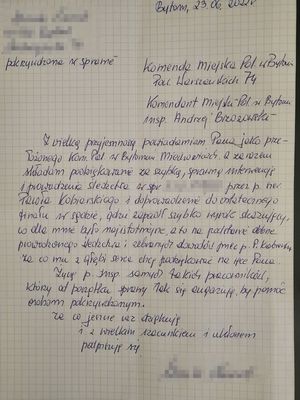 Bytom, 23.06.2022r
pokrzywdzona w sprawie
Komenda Miejska Pol. w Bytomiu
Pow. Warszawskich 74
Komendant Miejski Pol. w Bytomiu
insp. Andrzej Brzozowski
Z wielką przyjemnością powiadamiam Pana jako prze-
łożonego Kom. Pol. w Bytomiu Miechowicach, a zarazem
składam podziękowanie za szybką, sprawną interwencję
i prowadzenie śledztwa w spr. przez p.
Pawła Kobierskiego i doprowadzenie do ostatecznego
finału w sądzie, gdzie zapadł szybko wyrok skazujący,
co dla mnie było najistotniejsze, a to na podstawie dobrze
prowadzonego śledztwa i zebranych dowodów przez p. P. Kobierskiego
za co mu z głębi serca chcę podziękować na ręce Pana.
Życzę p. insp. samych takich pracowników,
którzy od początku sprawy tak się angażują, by pomóc
osobom pokrzywdzonym.
Za co jeszcze raz dziękuję
i z wielkim szacunkiem i ukłonem
podpisuję się